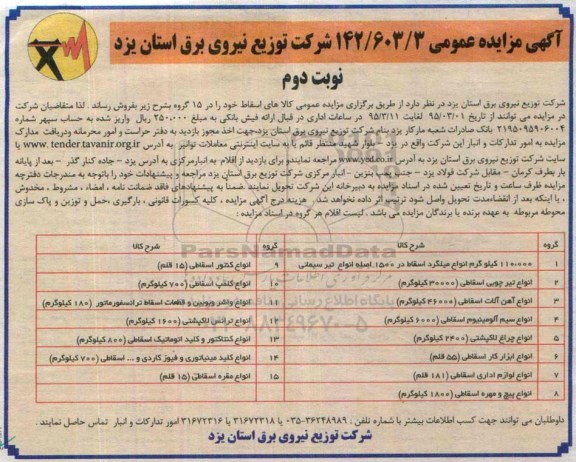 آگهی مزایده عمومی ۱۴۲/۶۰۳/۳ شرکت توزیع نیروی برق استان یزد
نوبت دوم
شرکت توزیع نیروی برق استان یزد در نظر دارد از طریق برگزاری مزایده عمومی کالا های اسقاط خود را در ۱۵ گروه بشرح زیر بفروش رساند . لذا متقاضیان شرکت
در مزایده می توانند از تاریخ ۹۵/۰۳/۰۱ لغایت ۹۵/۳/۱۱ در ساعات اداری در قبال ارائه فیش بانکی به مبلغ ۲۵۰.۰۰۰ ریال واریز شده به حساب سپهر شماره
۰۲۱۹۵۰۹۵۹۰۶۰۰۴ بانک صادرات شعبه مارکار یزد بنام شرکت توزیع نیروی برق استان یزد،جهت اخذ مجوز بازدید به دفتر حراست و امور محرمانه ودریافت مدارک
مزایده به امور تدارکات و انبار این شرکت واقع در یزد منتظر قائم یا به سایت اینترنتی معاملات توانیر به آدرس www.tender.tavanir.org.ir یا
سایت شرکت توزیع نیروی برق استان یزد به آدرس www.yed.co.ir مراجعه نمایند برای بازدید از اقلام به انبارمرکزی به آدرس یزد - جاده کنار گذر - بعد از پایانه
بار بطرف کرمان - مقابل فولاد یزد - جنب پمپ بنزین - انبار مرکزی شرکت توزیع نیروی برق استان یزد مراجعه و پیشنهادات خود را باتوجه به مندرجات دفترچه
مزایده ظرف ساعت و تاریخ تعیین شده در اسناد مزایده به دبیرخانه این شرکت تحویل نمایند ضمنا به پیشنهادهای فاقد ضمانت نامه ، امضاء ، مشروط ، مخدوش
، یا اینکه بعد از انقضاءمدت تحویل واصل شود ترتیب اثر داده نخواهد شد . هزینه درج آگهی مزایده ، کلیه کسورات قانونی ، بارگیری ،حمل و توزین و پاک سازی
محوطه مربوطه به عهده برنده یا برندگان مزایده می باشد . لیست اقلام هر گروه در اسناد مزایده :
گروه شرح کالا گروه شرح کالا
۱ ۱۱۰،۰۰۰ کیلو گرم انواع میلگرد اسقاط در ۱۵۰۰ اصله انواع تیر سیمانی ۹ انواع کنتور اسقاطی (۱۵ قلم)
۲ انواع تیر چوبی اسقاطی (۳۰۰۰۰ کیلوگرم) ۱۰ انواع کلمپ اسقاطی (۷۰۰ کیلوگرم)
۳ انواع آهن آلات اسقاطی (۴۶۰۰۰ کیلوگرم) ۱۱ انواع واشر وبوبین و قطعات اسقاط ترانسفورماتور (۱۸۰ کیلوگرم)
۴ انواع سیم آلومینیوم اسقاطی (۶۰۰۰ کیلوگرم) ۱۲ انواع ترانس لاکپشتی (۱۶۰۰ کیلوگرم)
۵ انواع چراغ لاکپشتی (۲۴۰۰ کیلوگرم) ۱۳ انواع کنتاکتور و کلید اتوماتیک اسقاطی (۸۰۰ کیلوگرم)
۶ انواع ابزار کار اسقاطی (۵۵ قلم) ۱۴ انواع کلید مینیاتوری و فیوز کاردی و ... اسقاطی (۷۰۰ کیلوگرم)
۷ انواع لوازم اداری اسقاطی (۱۸۱ قلم) ۱۵ انواع مقره اسقاطی (۱۵ قلم)
۸ انواع پیچ و مهره اسقاطی (۱۸۰۰ کیلوگرم)
ParsNamadData
داوطلبان می توانند جهت کسب اطلاعات بیشتر با شماره تلفن : ۳۶۲۴۸۹۸۹-۰۳۵ یا ۳۱۶۷۲۳۱۸ یا ۳۱۶۷۲۳۱۶ امور تدارکات و انبار تماس حاصل نمایند .
شرکت توزیع نیروی برق استان یزد